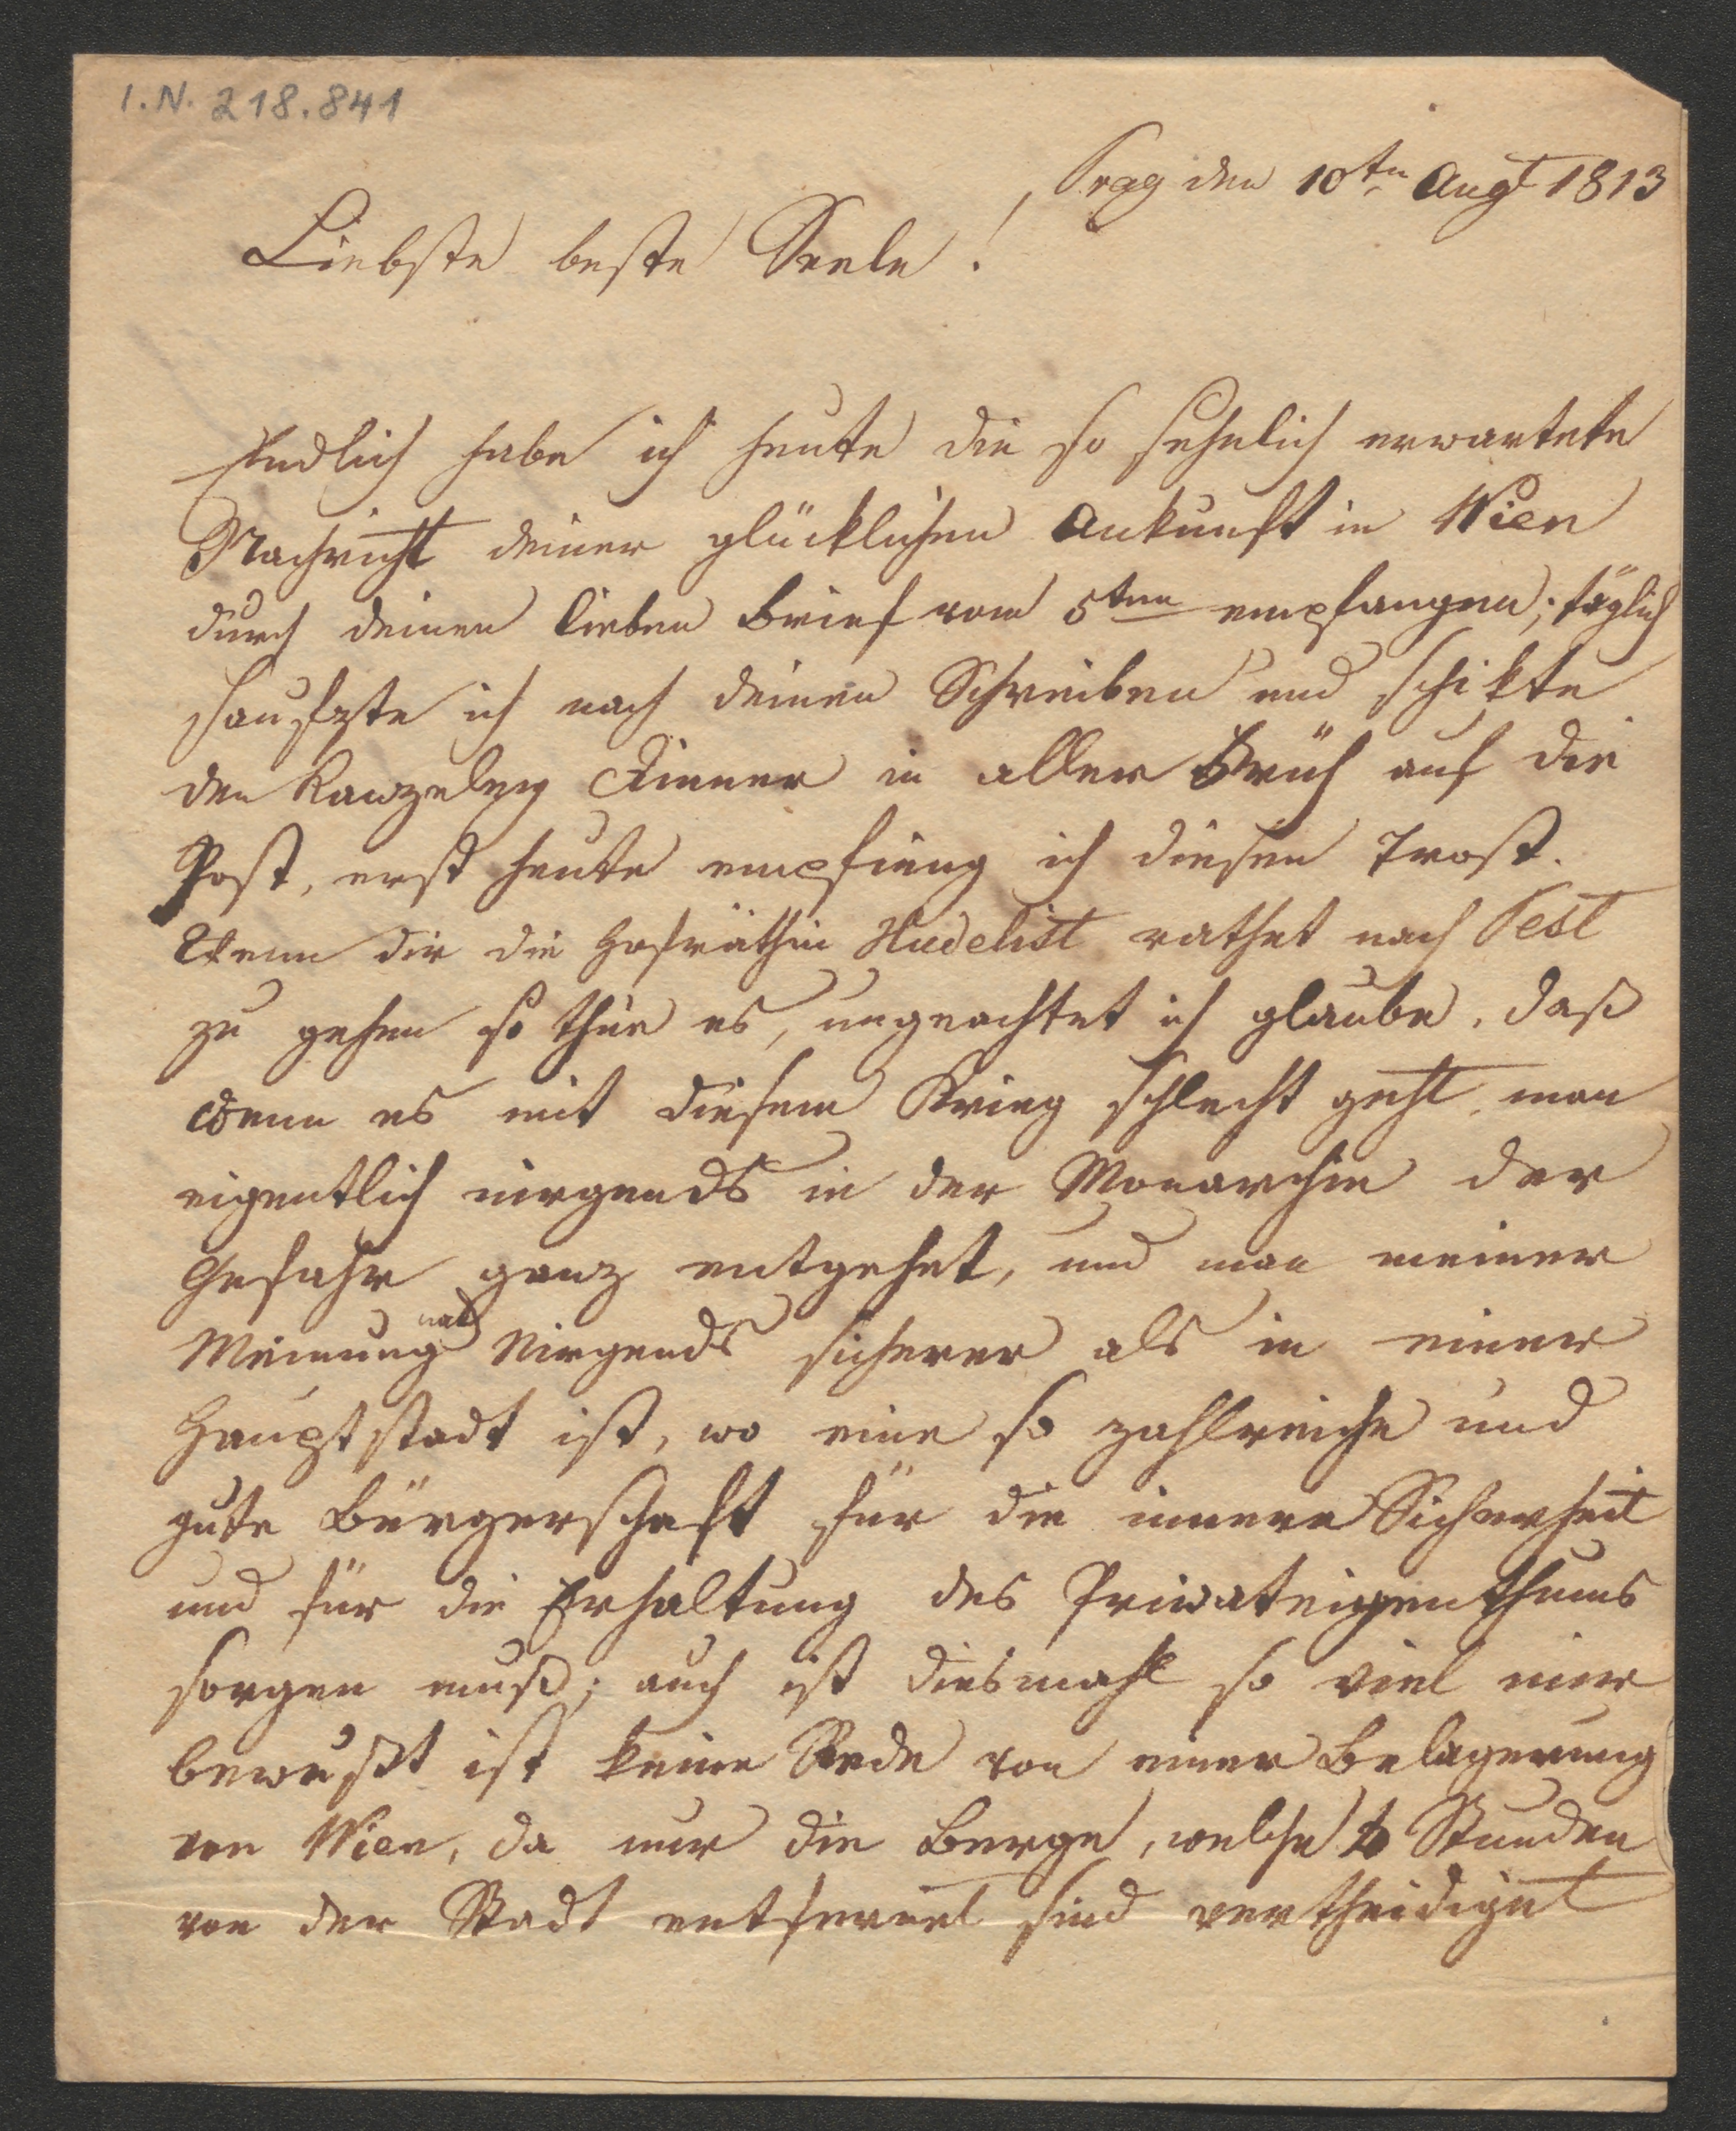 I.N. 218.841
Prag den 10ten Augt 1813
Liebste beste Seele!
Endlich habe ich heute die so sehnlich erwartete
Nachricht deiner glücklichen Ankunft in Wien
durch deinen lieben Brief vom 5ten empfangen; täglich
seufzte ich nach deinen Schreiben und schikte
den Kanzeley Diener in aller Früh auf die
Post, erst heute empfieng ich diesen Trost.
Wenn dir die Hofräthin Hudelist rathet nach Pest
zu gehen so thue es, ungeachtet ich glaube, daß
wenn es mit diesem Krieg schlecht geht, man
eigentlich nirgends in der Monarchie der
Gefahr ganz entgehet, und man meiner
Meinung nach Nirgends sicherer als in einer
Hauptstadt ist, wo eine so zahlreiche und
gute Bürgerschaft für die innere Sicherheit
und für die Erhaltung des Privateigenthums
sorgen muß; auch ist diesmahl so viel mir
bewußt ist keine Rede von einer Belagerung
von Wien, da nur die Berge, welche Stunden
von der Stadt entfernet sind vertheidiget